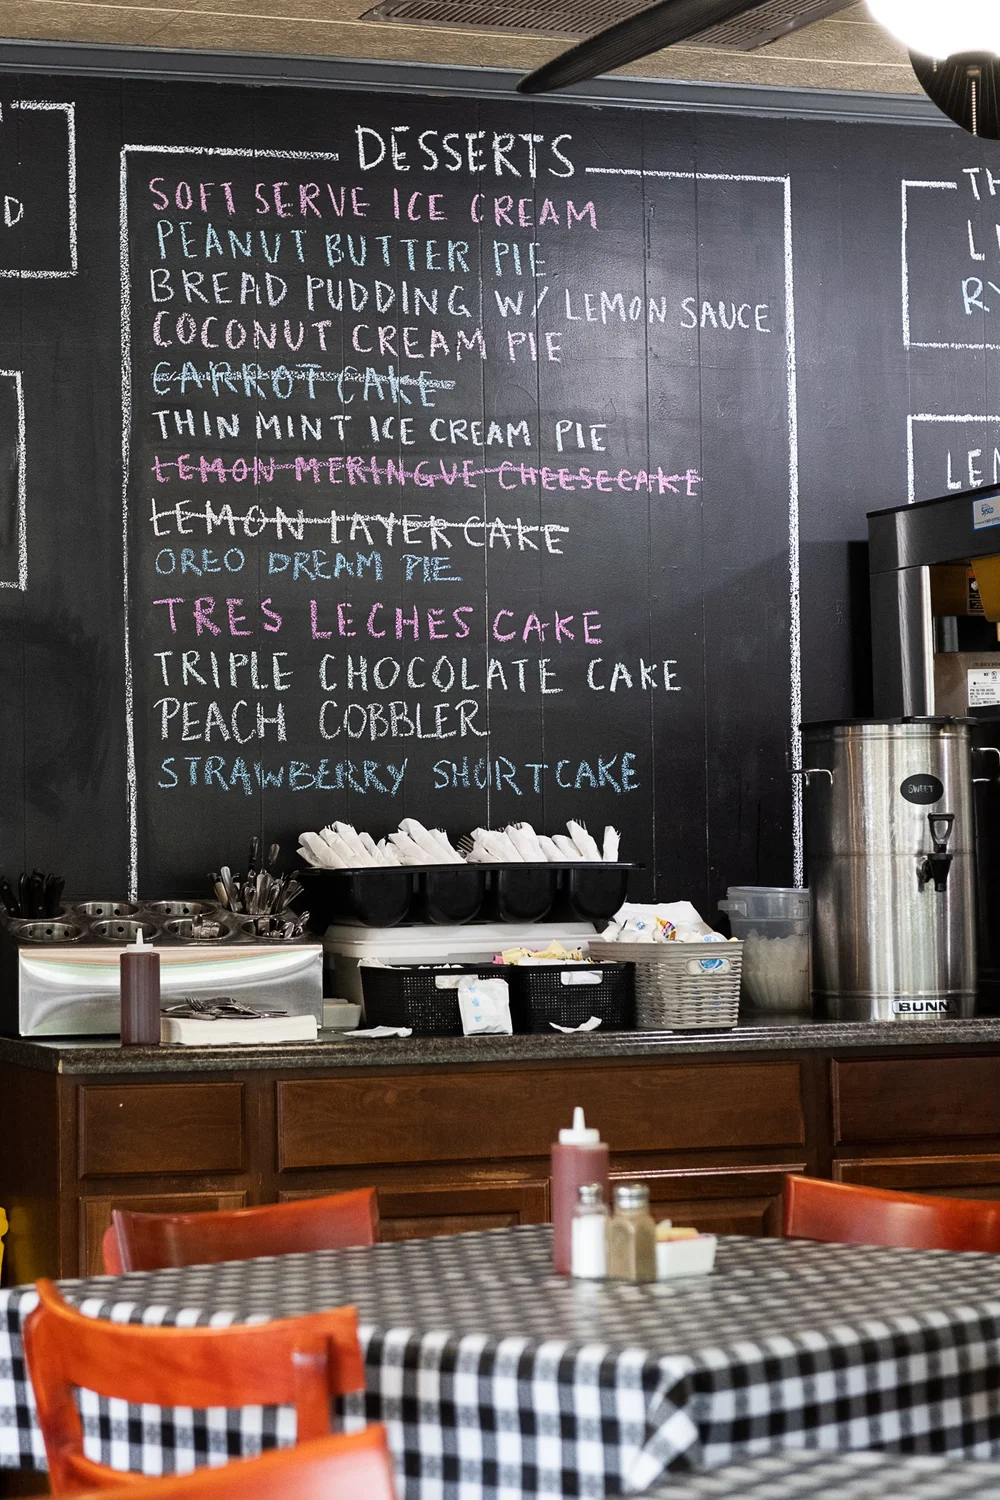 DESSERTS
SOFT SERVE ICE CREAM
PEANUT BUTTER PIE
BREAD PUDDING W/ LEMON SAUCE
COCONUT CREAM PIE
CARROT CAKE
THIN MINT ICE CREAM PIE
LEMON MERINGUE CHEESECAKE
LEMON LAYER CAKE
OREO DREAM PIE
TRES LECHES CAKE
TRIPLE CHOCOLATE CAKE
PEACH COBBLER
STRAWBERRY SHORTCAKE
D
TH
L
RY
LEM
Sysco
SWEET
BUNN